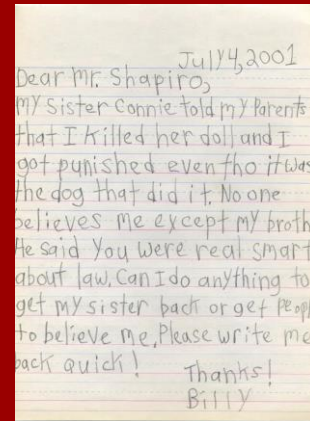 July 4, 2001
Dear Mr. Shapiro,
My sister Connie told my Parents
that I Killed her doll and I
got punished even tho it was
the dog that did it. No one
believes me except my broth
He said You were real smart
about law. Can I do anything to
get my sister back or get Peopl
to believe me. Please write me
back quick!
Thanks!
Billy